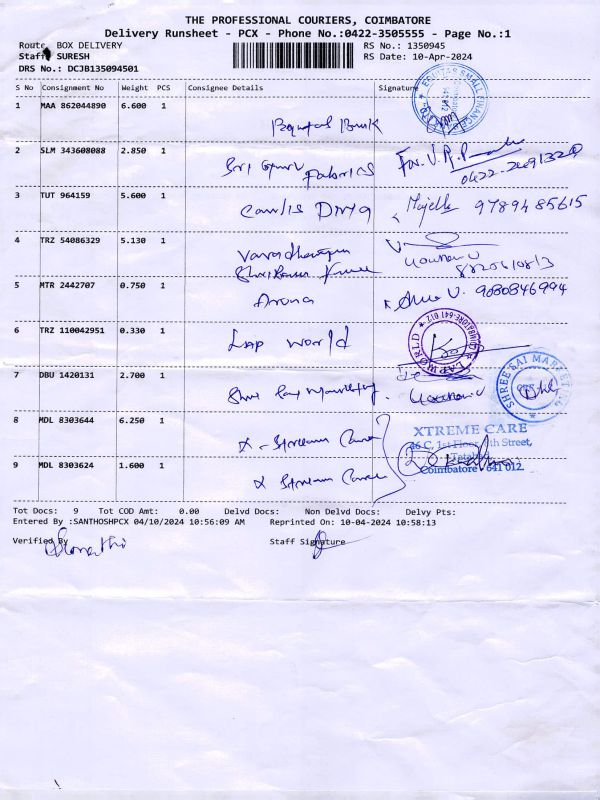 THE PROFESSIONAL COURIERS, COIMBATORE
Delivery Runsheet - PCX - Phone No.:0422-3505555 - Page No.:1
Route BOX DELIVERY RS No.: 1350945
Staff SURESH RS Date: 10-Apr-2024
DRS No.: DCJB135094501
S No Consignment No Weight PCS Consignee Details Signature
1 MAA 862044890 6.600 1
2 SLM 343608088 2.850 1
Sri Guru Fabrics
3 TUT 964159 5.600 1
9789485615
4 TRZ 54086329 5.130 1
5 MTR 2442707 0.750 1
Aruna 9080846994
6 TRZ 110042951 0.330 1
Lap World
LAP WORLD COIMBATORE-641 012
7 DBU 1420131 2.700 1
SHREE SAI MARKETING
8 MDL 8303644 6.250 1
XTREME CARE
46 C, 1st Floor, 4th Street,
Tatabad,
Coimbatore - 641 012.
9 MDL 8303624 1.600 1
Tot Docs: 9 Tot COD Amt: 0.00 Delvd Docs: Non Delvd Docs: Delvy Pts:
Entered By :SANTHOSHPCX 04/10/2024 10:56:09 AM Reprinted On: 10-04-2024 10:58:13
Verified By Staff Signature